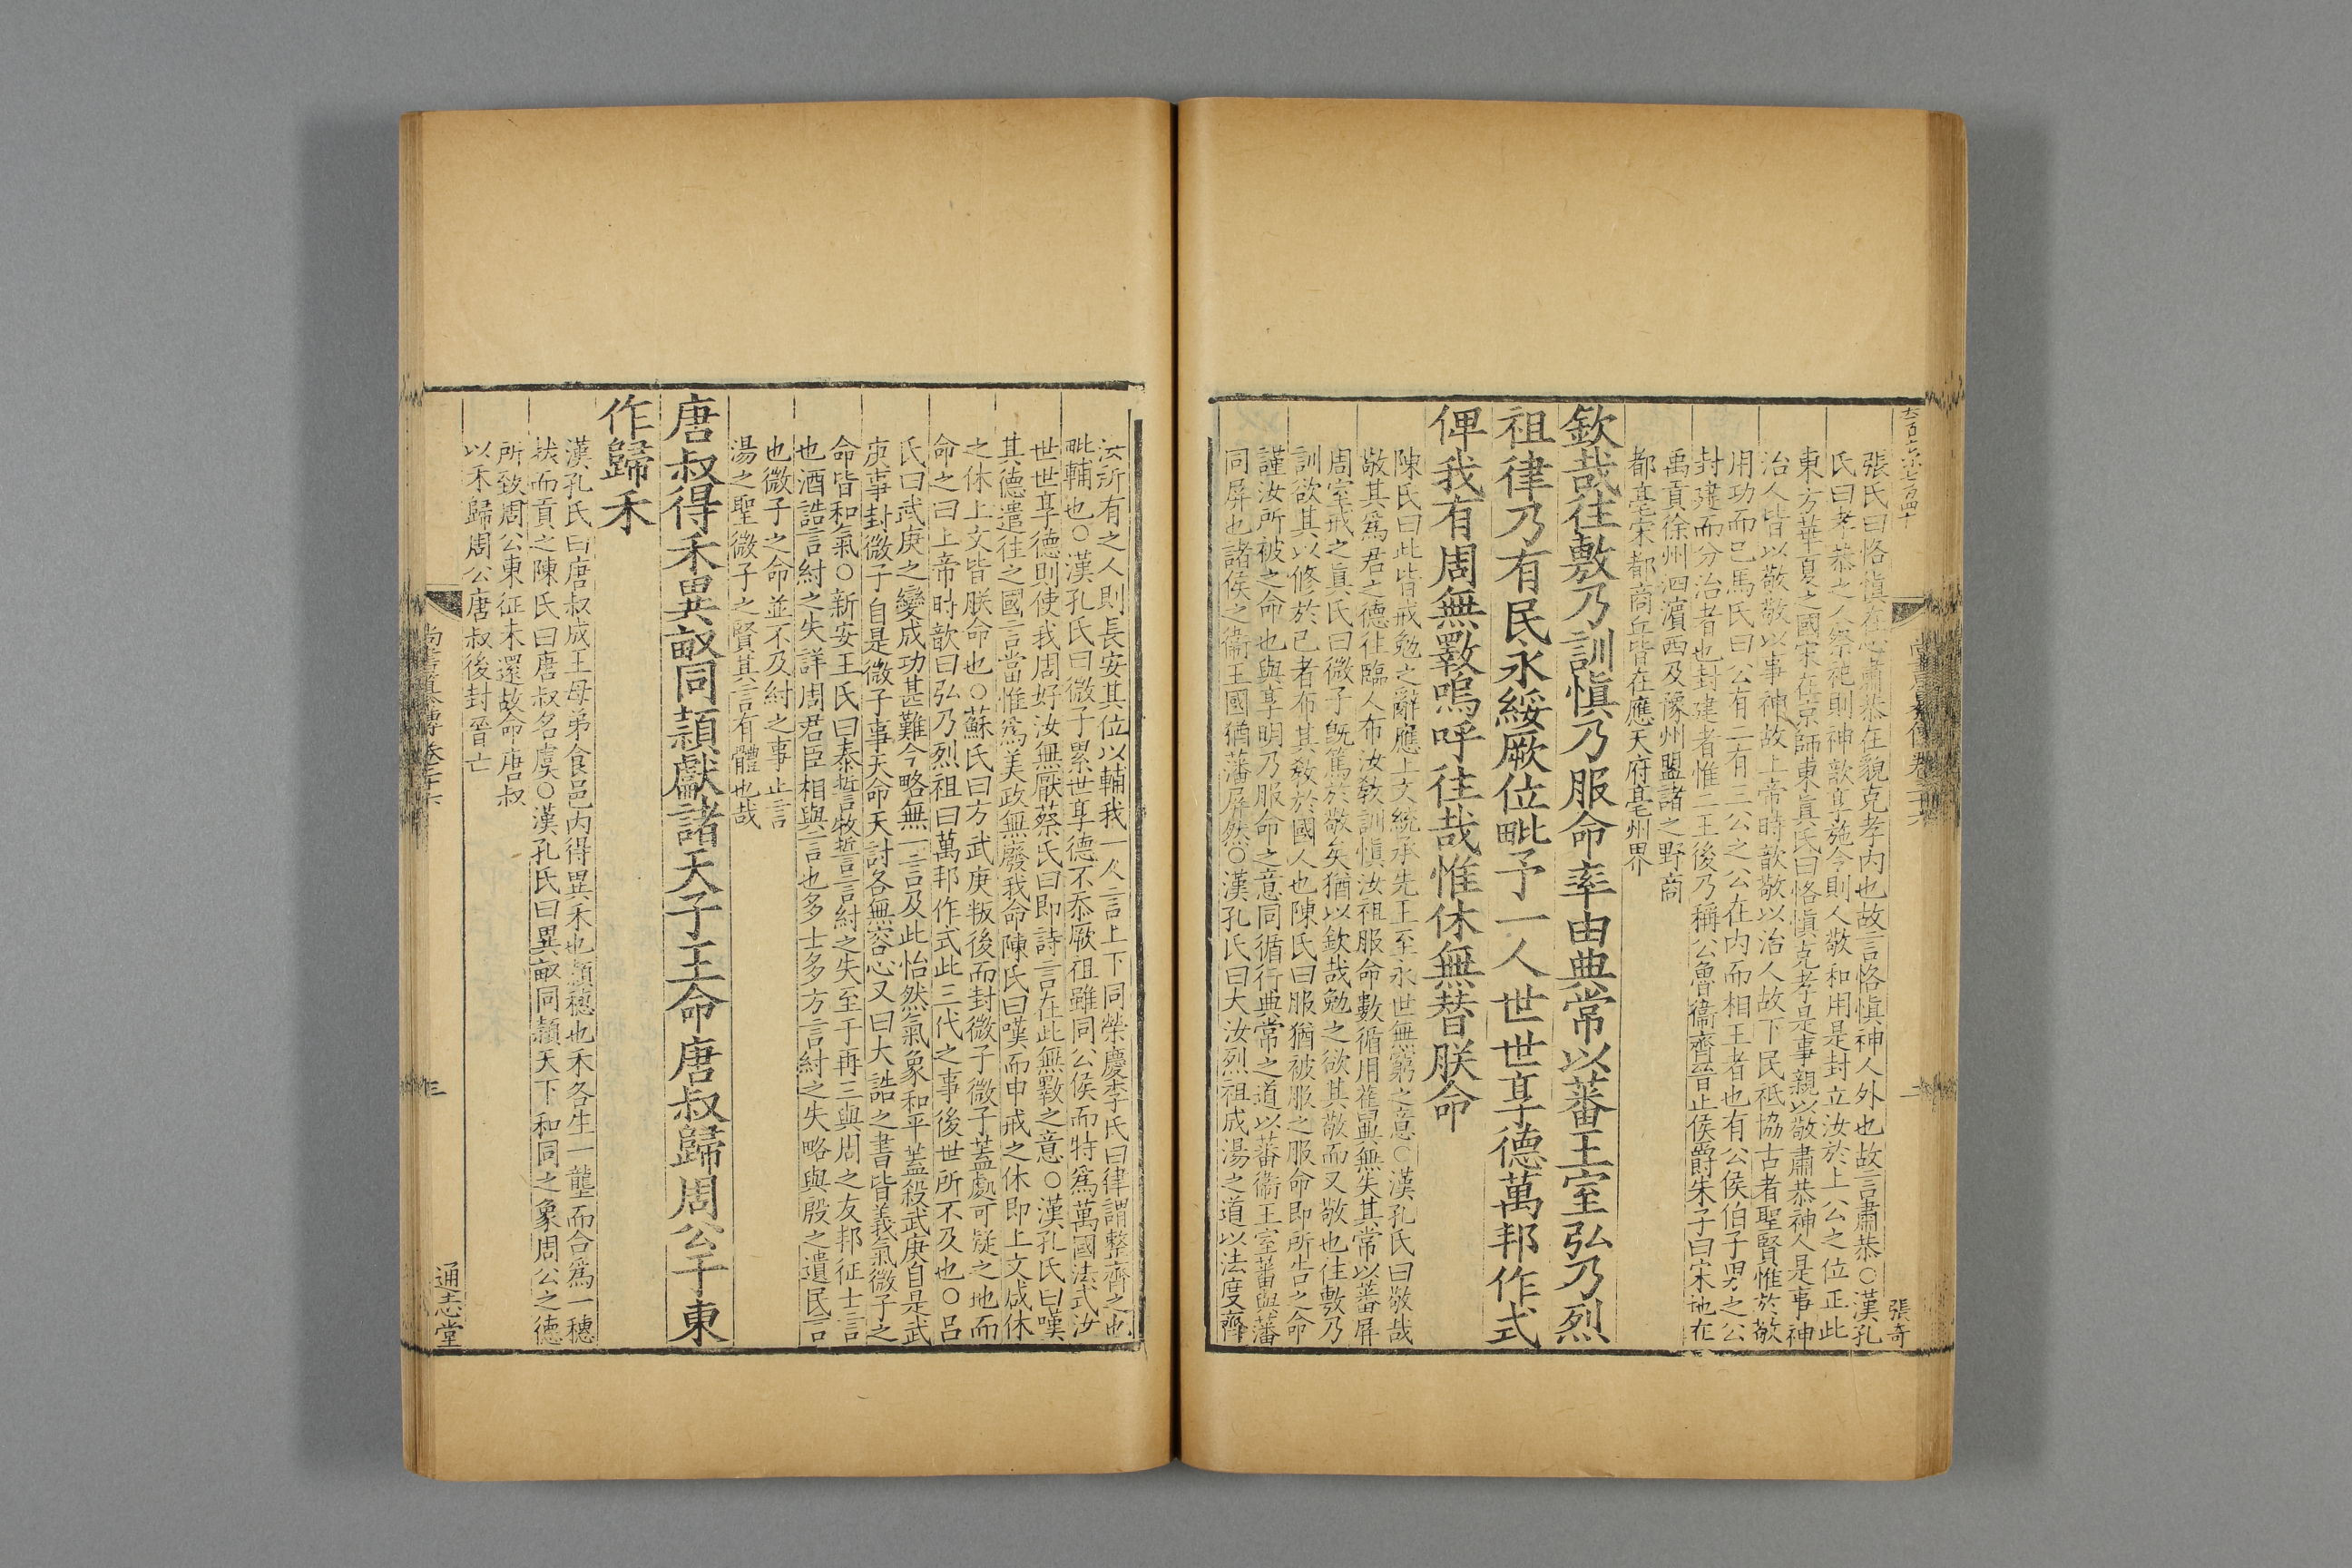 張氏曰恪慎在心肅恭在貌克孝内也故言恪慎神人外也故言肅恭○漢孔
氏曰孝恭之人祭祀則神歆享施令則人敬和用是封立汝於上公之位正此
東方華夏之國宋在京師東眞氏曰恪慎克孝是事親以敬肅恭神人是事神
治人皆以敬敬以事神故上帝時歆敬以治人故下民祗協古者聖賢惟於敬
用功而已馬氏曰公有二有三公之公在内而相王者也有公侯伯子男之公
封建而分治者也封建者惟二王後乃稱公魯衞齊晉止侯爵朱子曰宋地在
禹貢徐州泗濵西及豫州盟諸之野商
都亳宋都商丘皆在應天府亳州界
欽哉往敷乃訓慎乃服命率由典常以蕃王室弘乃烈
祖律乃有民永綏厥位毗予一人世世享德萬邦作式
俾我有周無斁嗚呼往哉惟休無替朕命
陳氏曰此皆戒勉之辭應上文統承先王至永世無窮之意○漢孔氏曰敬哉
敬其爲君之德往臨人布汝敎訓慎汝祖服命數循用舊典無失其常以蕃屏
周室戒之眞氏曰微子旣篤於敬矣猶以欽哉勉之欲其敬而又敬也往敷乃
訓欲其以修於已者布其敎於國人也陳氏曰服猶被服之服命即所告之命
謹汝所被之命也與享明乃服命之意同循行典常之道以蕃衞王室蕃與藩
同屏也諸侯之衞王國猶藩屏然○漢孔氏曰大汝烈祖成湯之道以法度齊
張奇
汝所有之人則長安其位以輔我一人言上下同榮慶李氏曰律謂整齊之也
毗輔也○漢孔氏曰微子累世享德不忝厥祖雖同公侯而特爲萬國法武汝
世世享德則使我周好汝無厭蔡氏曰即詩言在此無斁之意○漢孔氏曰嘆
其德遣往之國言當惟爲美政無廢我命陳氏曰嘆而申戒之休即上文咸休
之休上文皆朕命也○蘇氏曰方武庚叛後而封微子微子蓋處可疑之地而
命之曰上帝時歆曰弘乃烈祖曰萬邦作式此三代之事後世所不及也○呂
氏曰武庚之變成功甚難今略無一言及此怡然氣象和平蓋殺武庚自是武
庚事封微子自是微子事天命天討各無容心又曰大誥之書皆義氣微子之
命皆和氣○新安王氏曰泰誓牧誓言紂之失至于再三與周之友邦征士言
也酒誥言紂之失詳周君臣相與言也多士多方言紂之失略與殷之遺民言
也微子之命並不及紂之事止言
湯之聖微子之賢其言有體也哉
唐叔得禾異畝同穎獻諸天子王命唐叔歸周公于東
作歸禾
漢孔氏曰唐叔成王母弟食邑内得異禾也穎穗也禾各生一壟而合爲一穗
拔而貢之陳氏曰唐叔名虞○漢孔氏曰異畝同穎天下和同之象周公之德
所致周公東征未還故命唐叔
以禾歸周公唐叔後封晉亡
通志堂